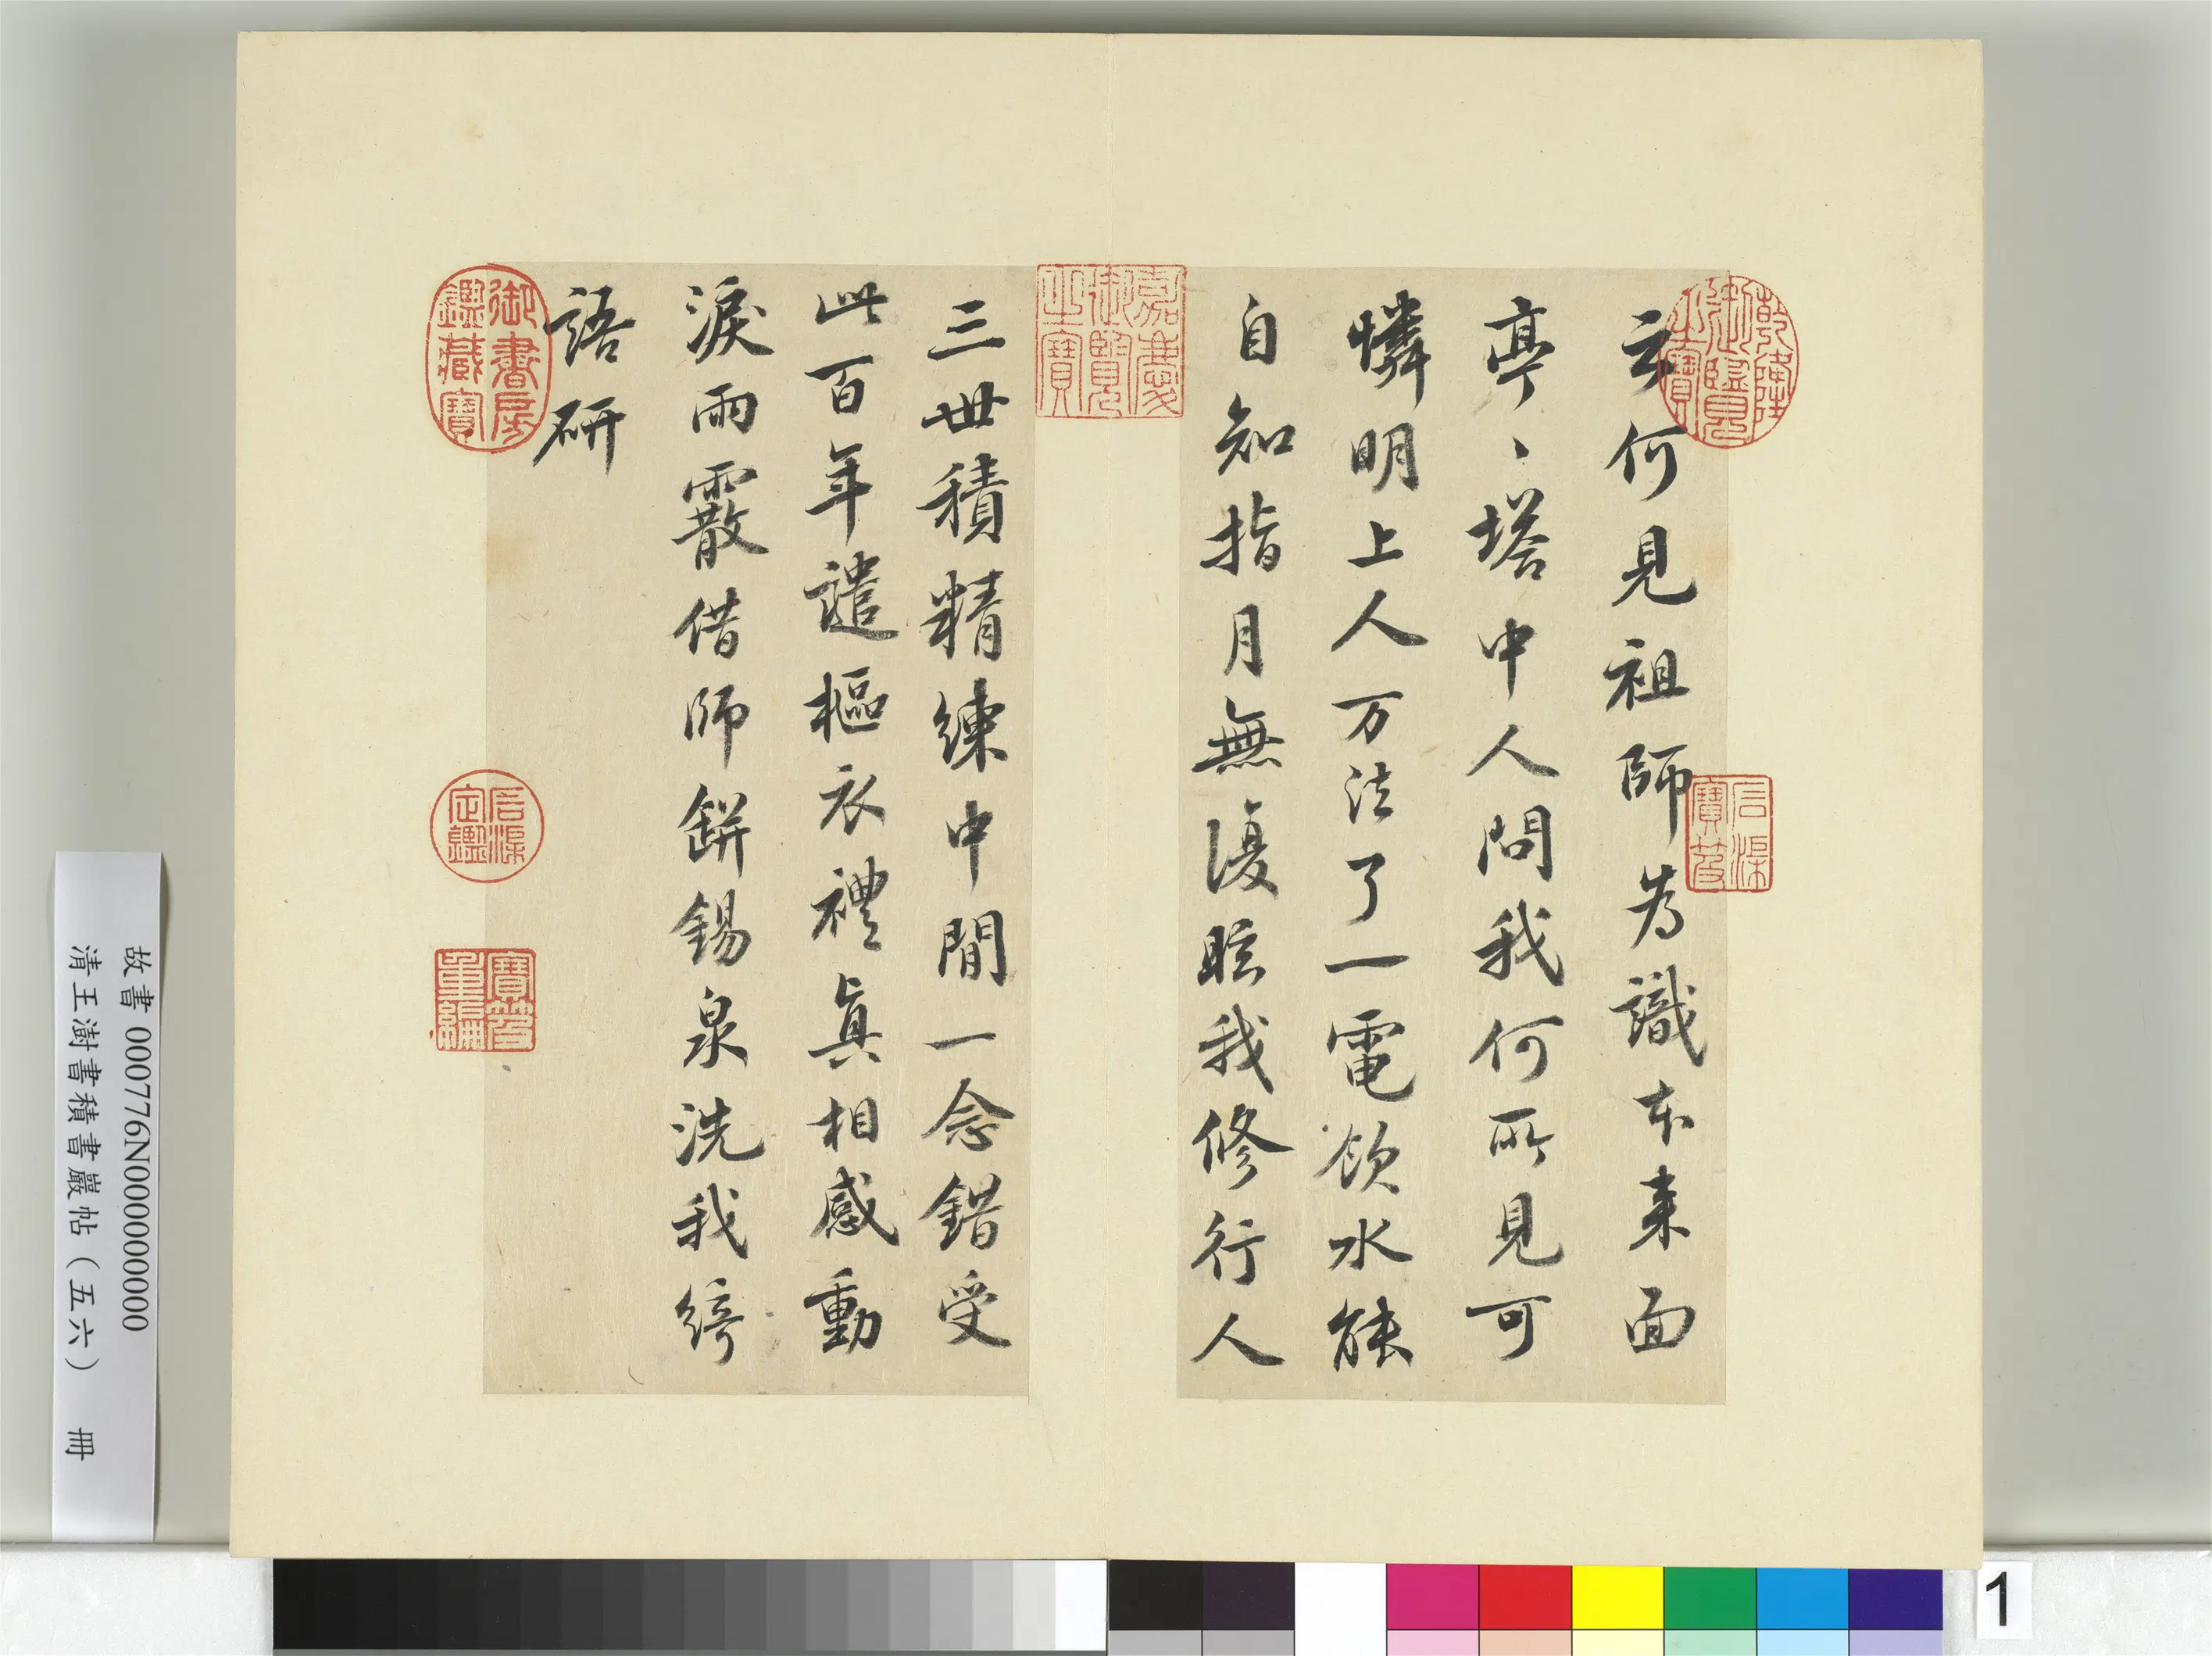 云何見祖師為識本来面
亭、塔中人問我何所見可
憐明上人万法了一電飲水能
自知指月無復眩我修行人
三世積精練中間一念錯受
此百年譴摳衣禮真相感動
淚雨霰借師錫泉洗我綺
語研
乾隆御覽之寶
石渠寶笈
嘉慶御覽之寶
御書房鑑藏寶
石渠定鑑
寶笈重編
故書 000776N000000000
清王澍書積書巖帖（五六） 冊
1